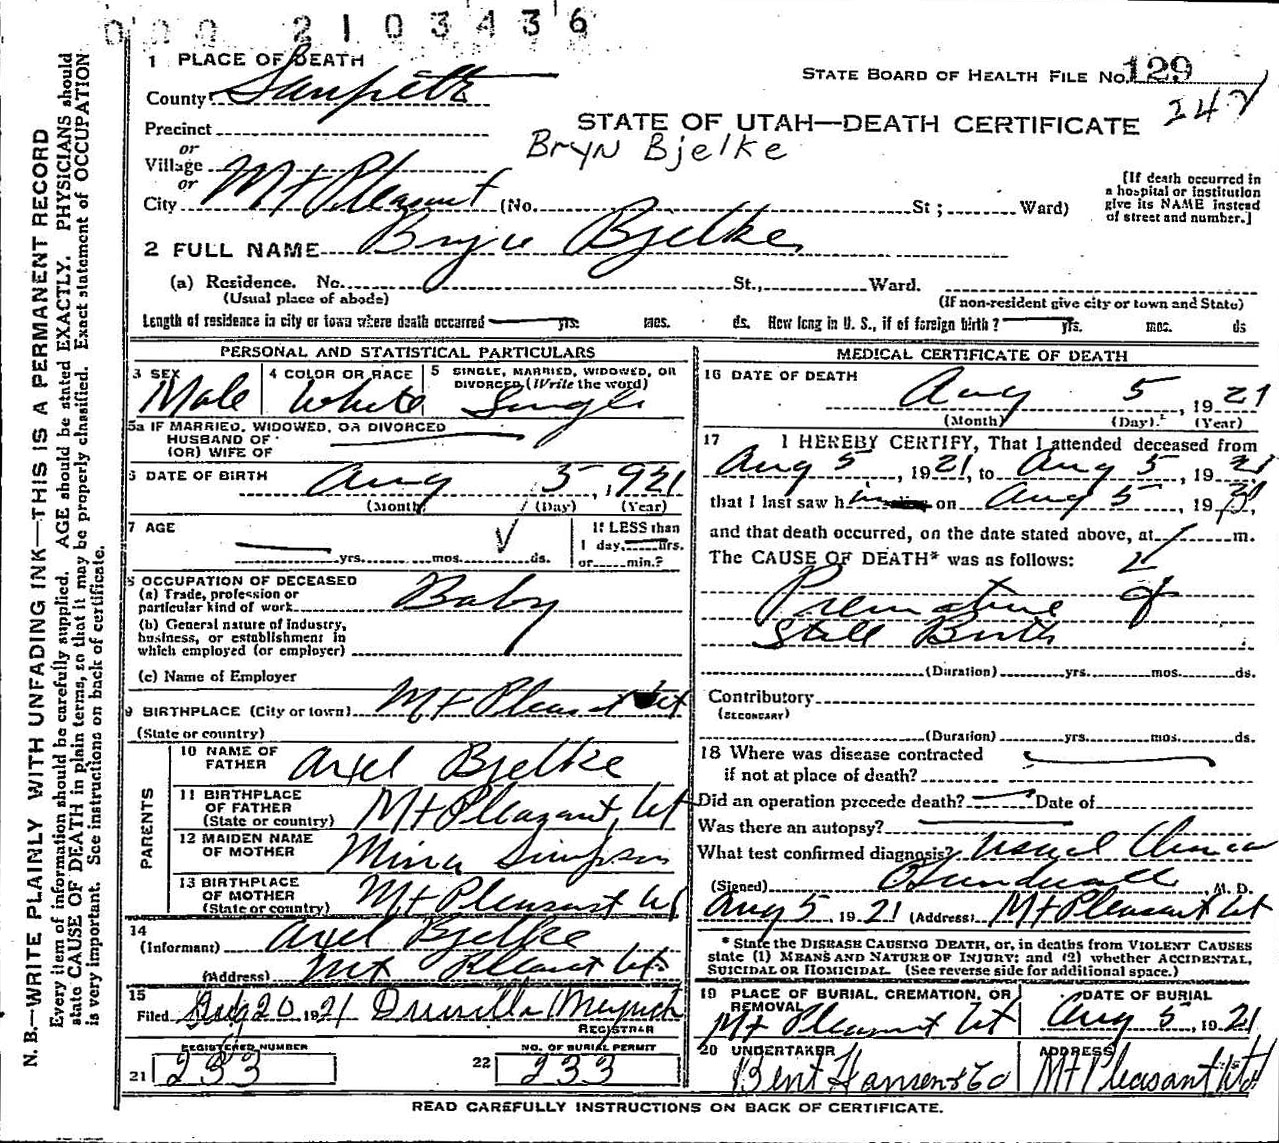 000 2103436
1 PLACE OF DEATH
STATE BOARD OF HEALTH FILE No. 129
County Sanpete
242
STATE OF UTAH—DEATH CERTIFICATE
Precinct
or
Bryn Bjelke
Village
or
City Mt Pleasant (No. St; Ward)
[If death occurred in
a hospital or institution
give its NAME instead
of street and number.]
2 FULL NAME Bryce Bjelke
(a) Residence. No. St., Ward.
(Usual place of abode)
(If non-resident give city or town and State)
Length of residence in city or town where death occurred yrs. mos. ds. How long in U. S., if of foreign birth? yrs. mos. ds
PERSONAL AND STATISTICAL PARTICULARS
3 SEX
Male
4 COLOR OR RACE
White
5 SINGLE, MARRIED, WIDOWED, OR
DIVORCED, (Write the word)
Single
5a IF MARRIED, WIDOWED, OR DIVORCED
HUSBAND OF
(OR) WIFE OF
6 DATE OF BIRTH Aug 5, 1921
(Month) (Day) (Year)
7 AGE
yrs. mos. ds.
If LESS than
1 day, hrs.
or min.?
8 OCCUPATION OF DECEASED
(a) Trade, profession or
particular kind of work Baby
(b) General nature of industry,
business, or establishment in
which employed (or employer)
(c) Name of Employer
9 BIRTHPLACE (City or town) Mt Pleasant Ut
(State or country)
PARENTS
10 NAME OF
FATHER Axel Bjelke
11 BIRTHPLACE
OF FATHER
(State or country) Mt Pleasant Ut
12 MAIDEN NAME
OF MOTHER Mina Simpson
13 BIRTHPLACE
OF MOTHER
(State or country) Mt Pleasant Ut
14
(Informant) Axel Bjelke
(Address) Mt Pleasant Ut.
15
Filed Aug 20 1921
REGISTRAR
REGISTERED NUMBER
21 233
NO. OF BURIAL PERMIT
22 233
MEDICAL CERTIFICATE OF DEATH
16 DATE OF DEATH
Aug 5, 1921
(Month) (Day). (Year)
17 I HEREBY CERTIFY, That I attended deceased from
Aug 5, 1921, to Aug 5, 1921
that I last saw him on Aug 5, 1921,
and that death occurred, on the date stated above, at m.
The CAUSE OF DEATH* was as follows:
Premature
Still Birth
(Duration) yrs. mos. ds.
Contributory
(SECONDARY)
(Duration) yrs. mos. ds.
18 Where was disease contracted
if not at place of death?
Did an operation precede death? Date of
Was there an autopsy?
What test confirmed diagnosis?
(Signed) , M. D.
Aug 5, 1921 (Address) Mt Pleasant Ut
* State the DISEASE CAUSING DEATH, or, in deaths from VIOLENT CAUSES
state (1) MEANS AND NATURE OF INJURY; and (2) whether ACCIDENTAL,
SUICIDAL OR HOMICIDAL. (See reverse side for additional space.)
19 PLACE OF BURIAL, CREMATION, OR
REMOVAL
Mt Pleasant Ut
DATE OF BURIAL
Aug 5, 1921
20 UNDERTAKER
Bent Hansen & Co
ADDRESS
Mt Pleasant Ut
READ CAREFULLY INSTRUCTIONS ON BACK OF CERTIFICATE.
N. B.—WRITE PLAINLY WITH UNFADING INK—THIS IS A PERMANENT RECORD
Every item of information should be carefully supplied. AGE should be stated EXACTLY. PHYSICIANS should
state CAUSE OF DEATH in plain terms, so that it may be properly classified. Exact statement of OCCUPATION
is very important. See instructions on back of certificate.